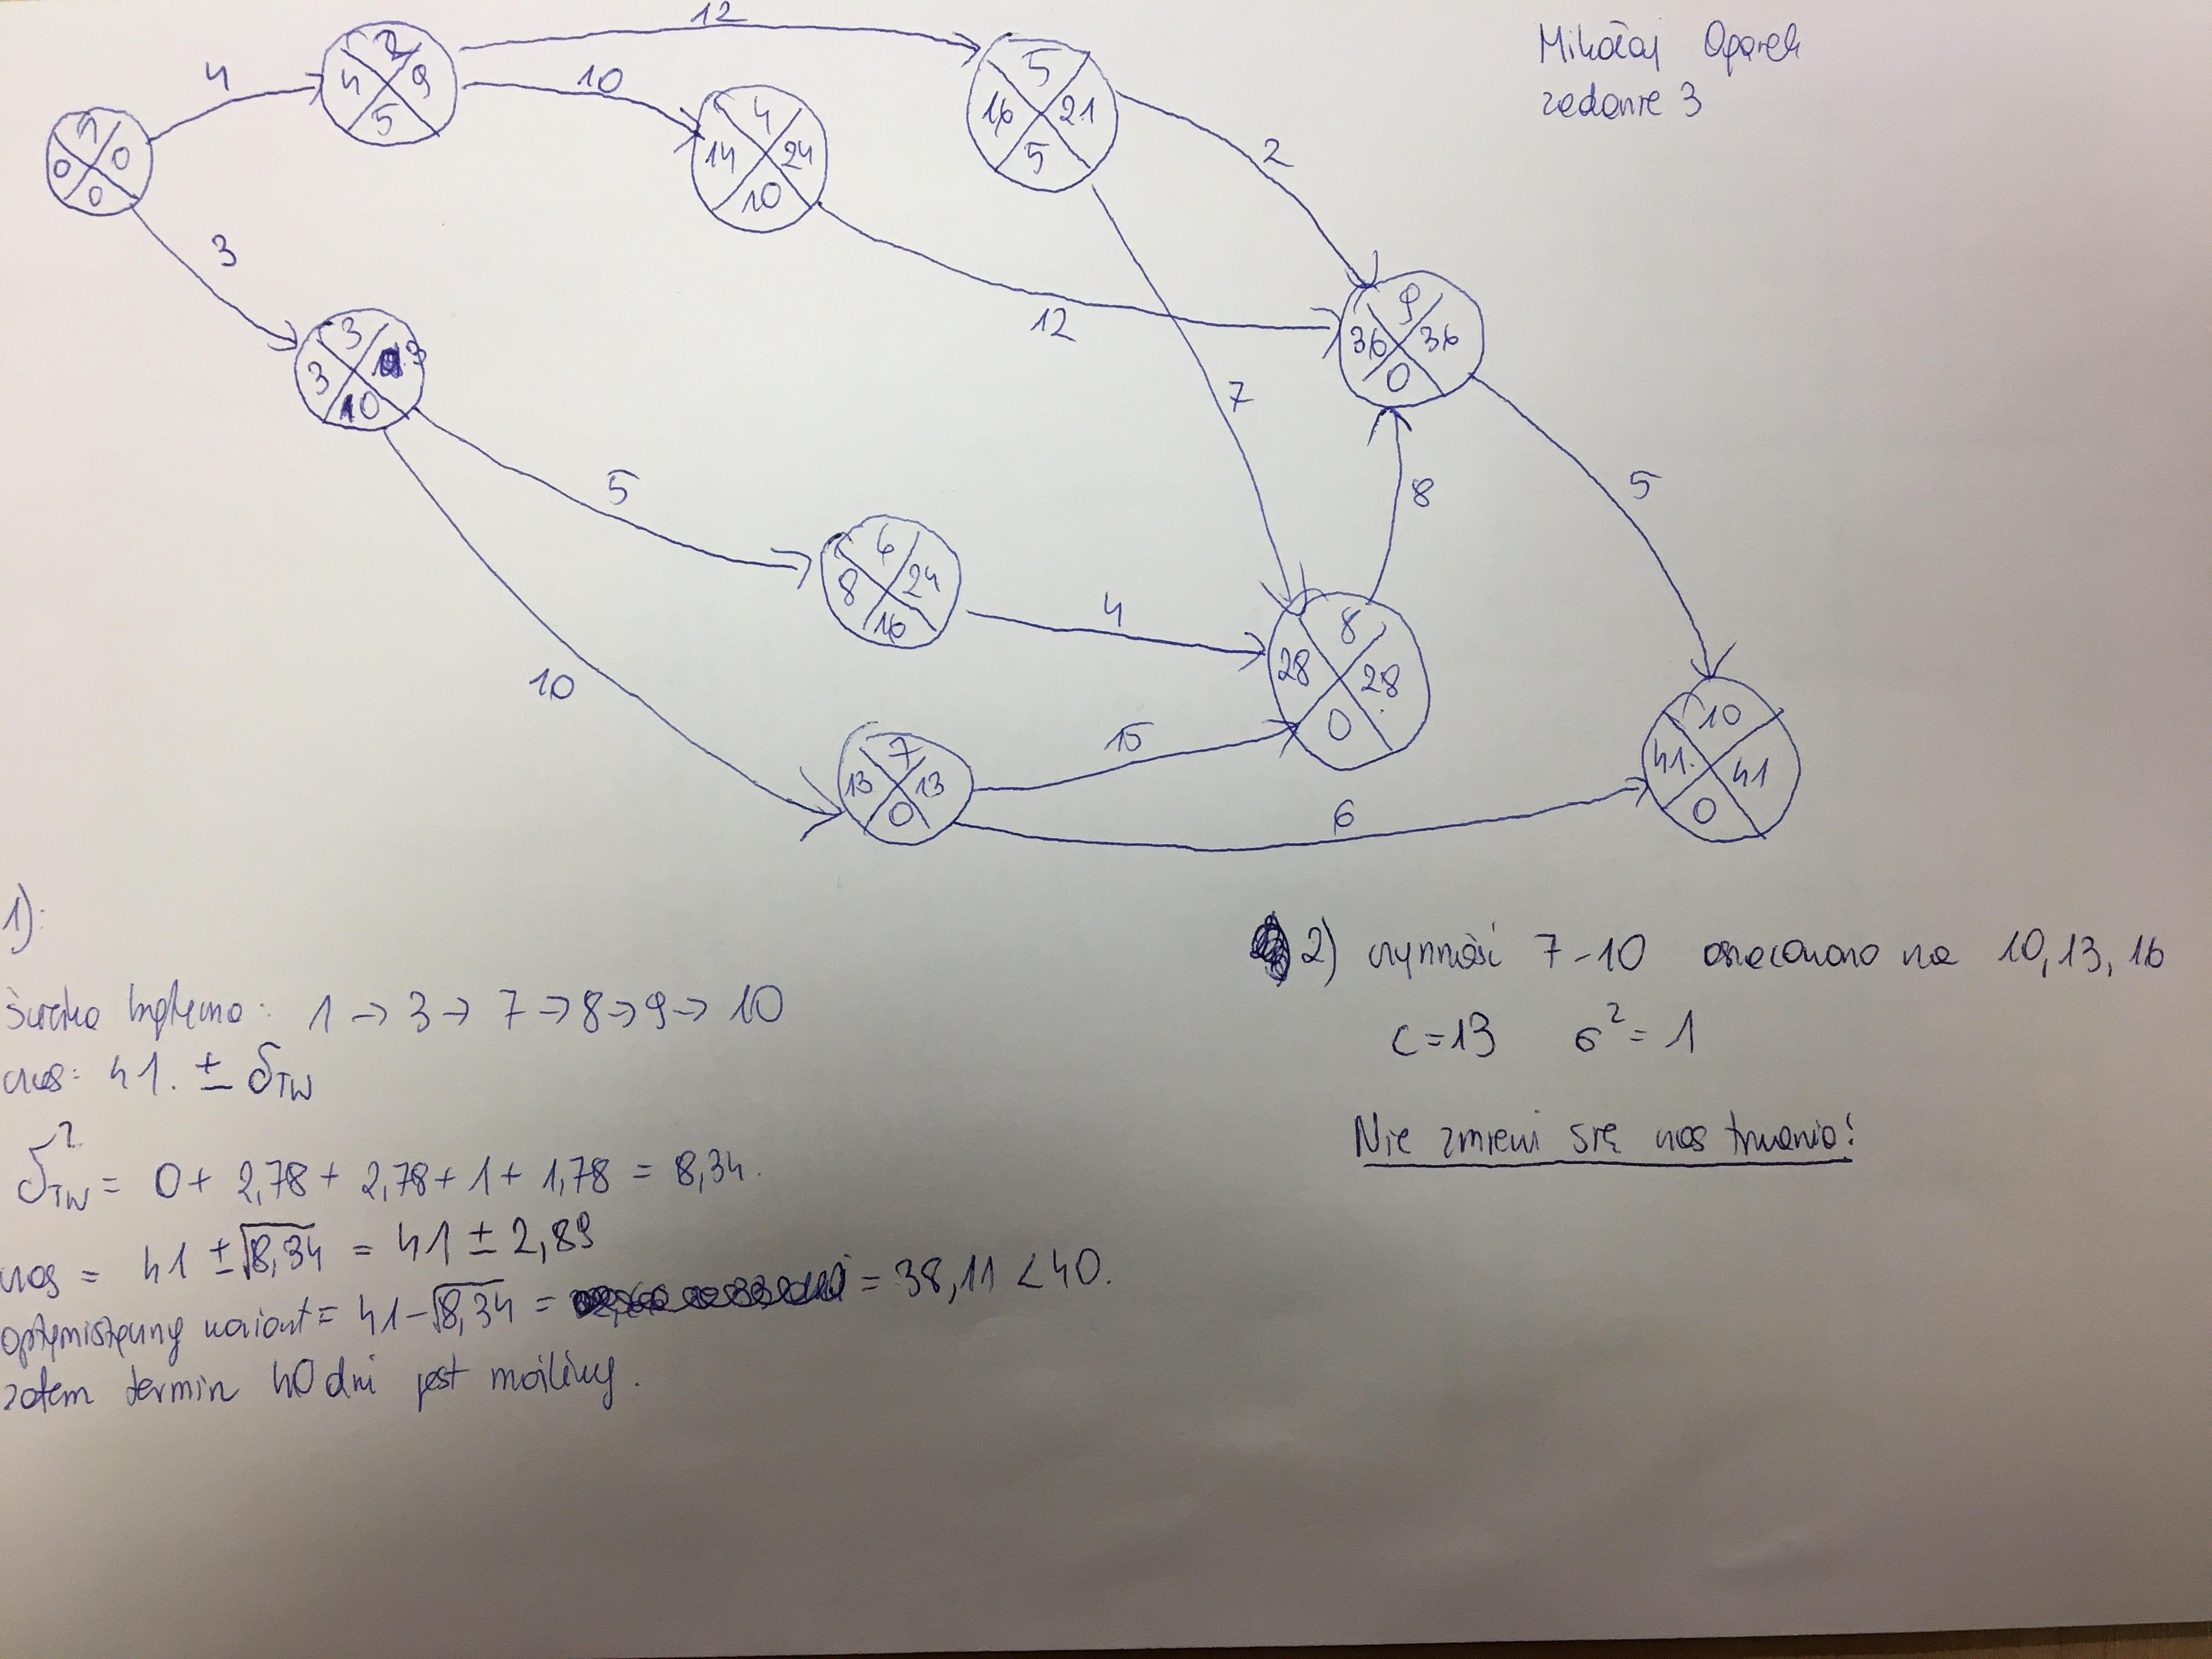 Mikołaj Oparek
zadanie 3
12
4
10
2
4 9
5
5
16 21
5
1
0 0
0
4
14 24
10
2
3
12
3
3
10
7
9
36 36
0
5
8
5
6
8 24
16
4
8
28 28
0
10
15
7
13 13
0
6
10
41. 41
0
1):
ścieżka krytyczna: 1 → 3 → 7 → 8 → 9 → 10
czas: 41. ± δTW
δ²TW = 0 + 2,78 + 2,78 + 1 + 1,78 = 8,34.
czas = 41 ± √8,34 = 41 ± 2,89
optymistyczny wariant = 41 - √8,34 = = 38,11 < 40.
zatem termin 40 dni jest możliwy.
2) czynność 7-10 oszacowano na 10, 13, 16
c = 13 σ² = 1
Nie zmieni się czas trwania!